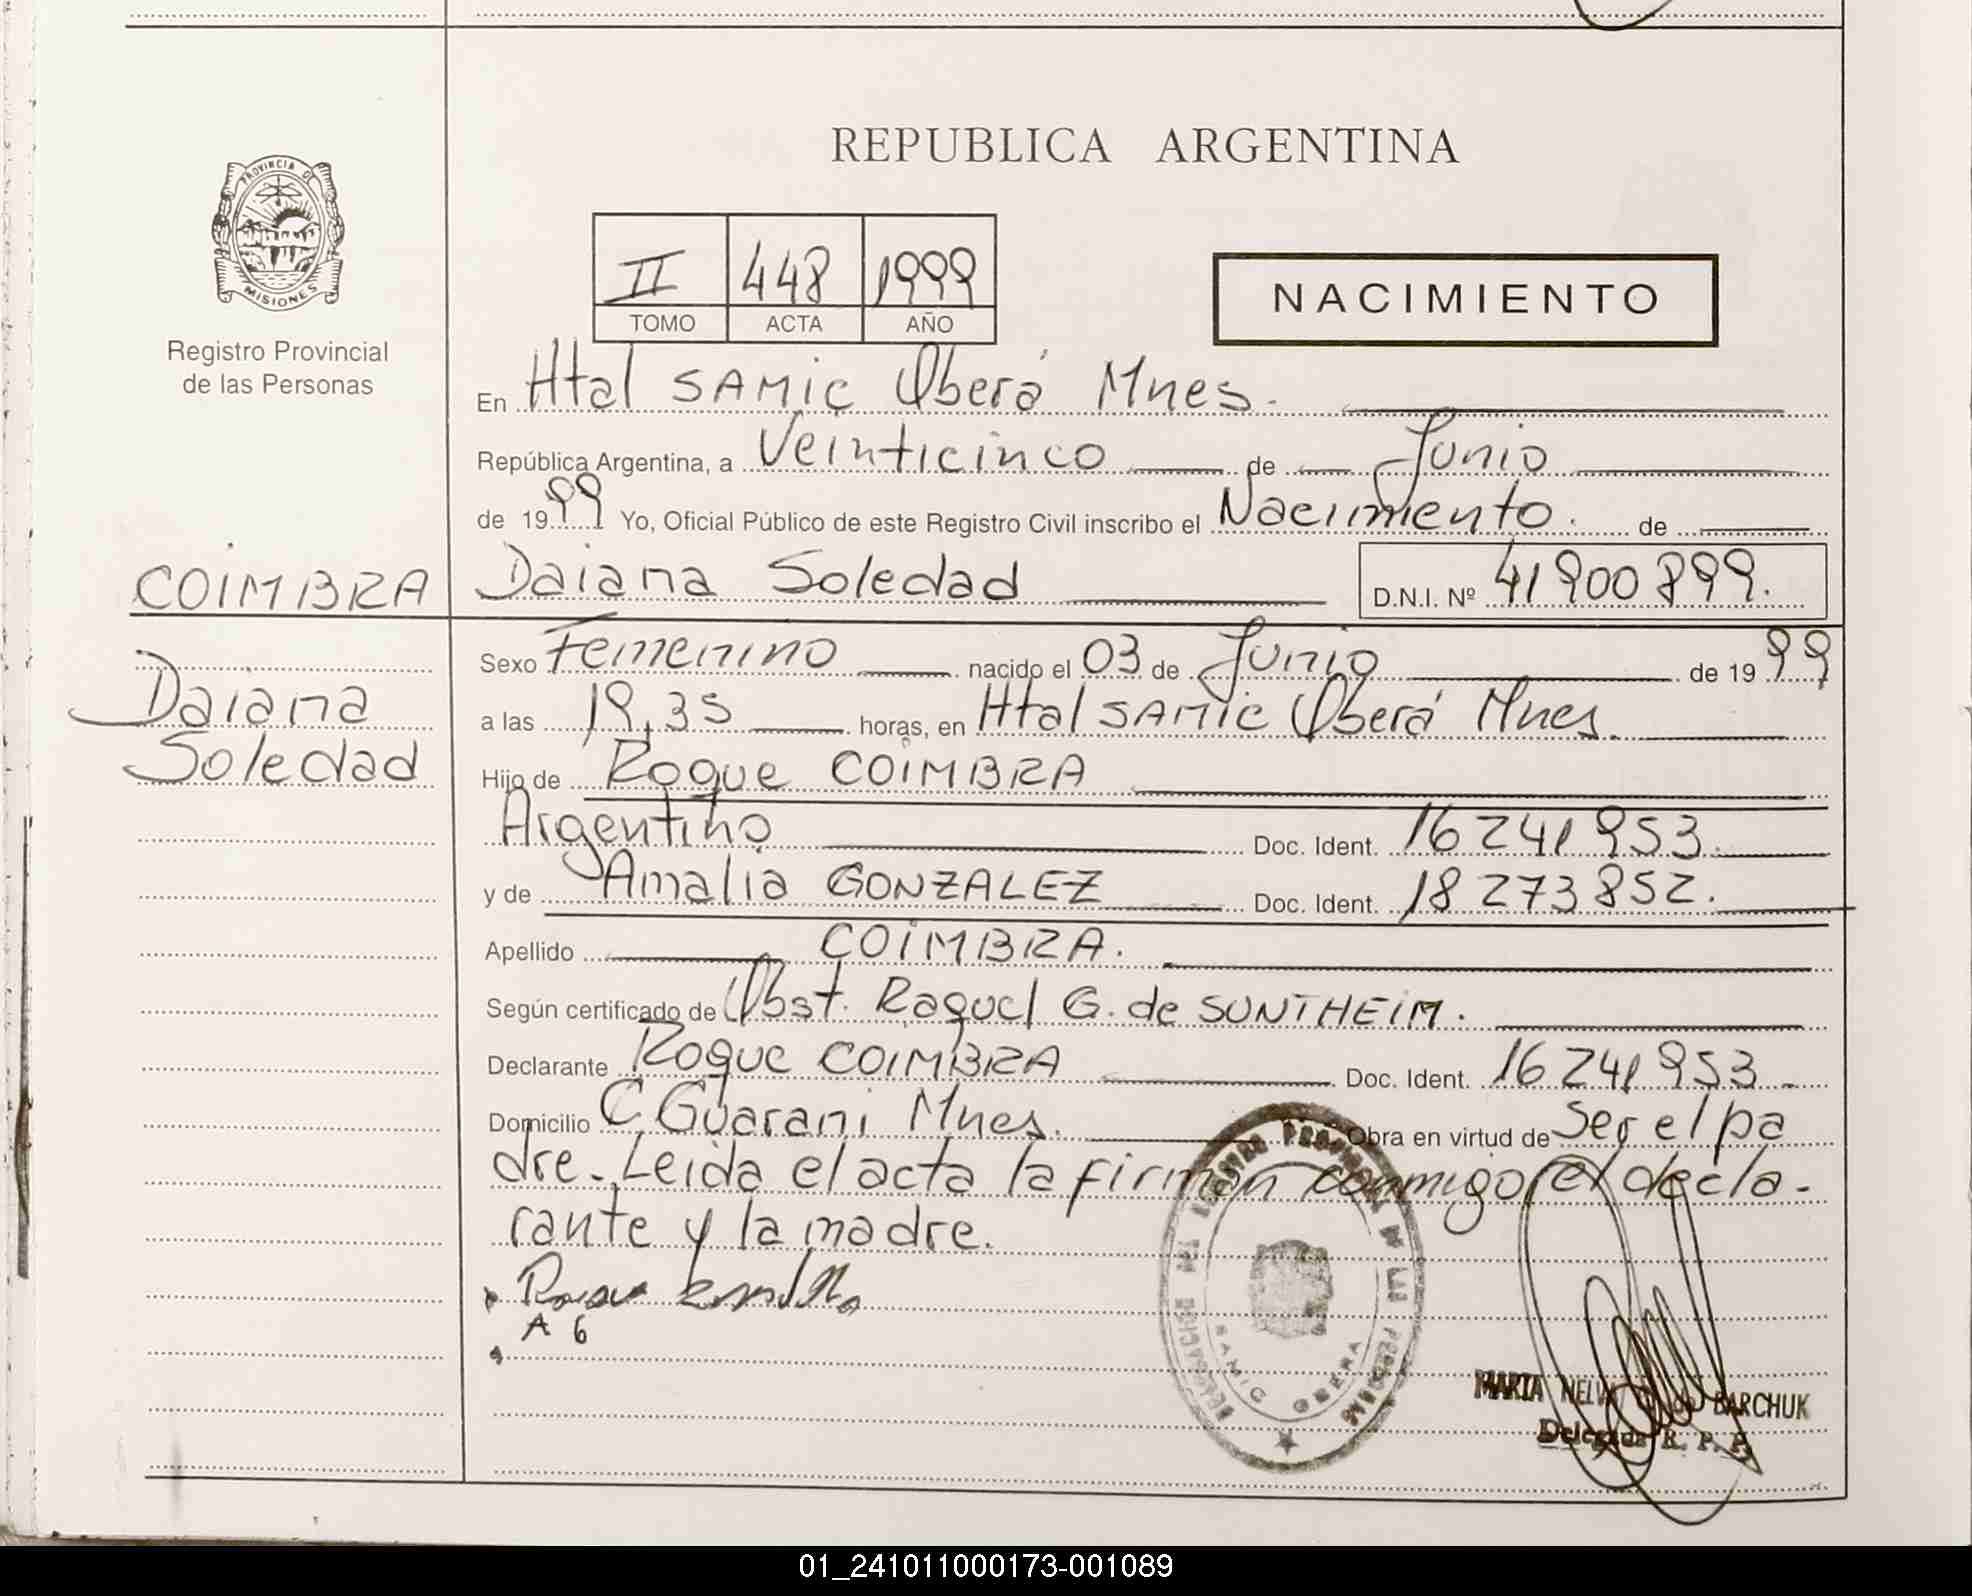 REPUBLICA ARGENTINA
PROVINCIA DE
MISIONES
Registro Provincial
de las Personas
II 448 1999
TOMO ACTA AÑO
NACIMIENTO
En Htal SAMIC Oberá Mnes.
República Argentina, a Veinticinco de Junio
de 1999 Yo, Oficial Público de este Registro Civil inscribo el Nacimiento. de
COIMBRA Daiana Soledad D.N.I. Nº 41 900 899.
Sexo Femenino nacido el 03 de Junio de 1999
Daiana a las 19,35 horas, en Htal SAMIC Oberá Mnes.
Soledad Hijo de Roque COIMBRA
Argentino Doc. Ident. 16 241 953.
y de Amalia GONZALEZ Doc. Ident. 18 273 852.
Apellido COIMBRA.
Según certificado de Obst. Raquel G. de SUNTHEIM.
Declarante Roque COIMBRA Doc. Ident. 16 241 953
Domicilio C. Guarani Mnes. Obra en virtud de Ser el pa
dre. Leida el acta la firman conmigo el decla-
rante y la madre.
A 6
DELEGACION DEL REGISTRO PROVINCIAL DE LAS PERSONAS
SAMIC OBERA
MARIA NELV de BARCHUK
Delegada R. P. P.
01_241011000173-001089